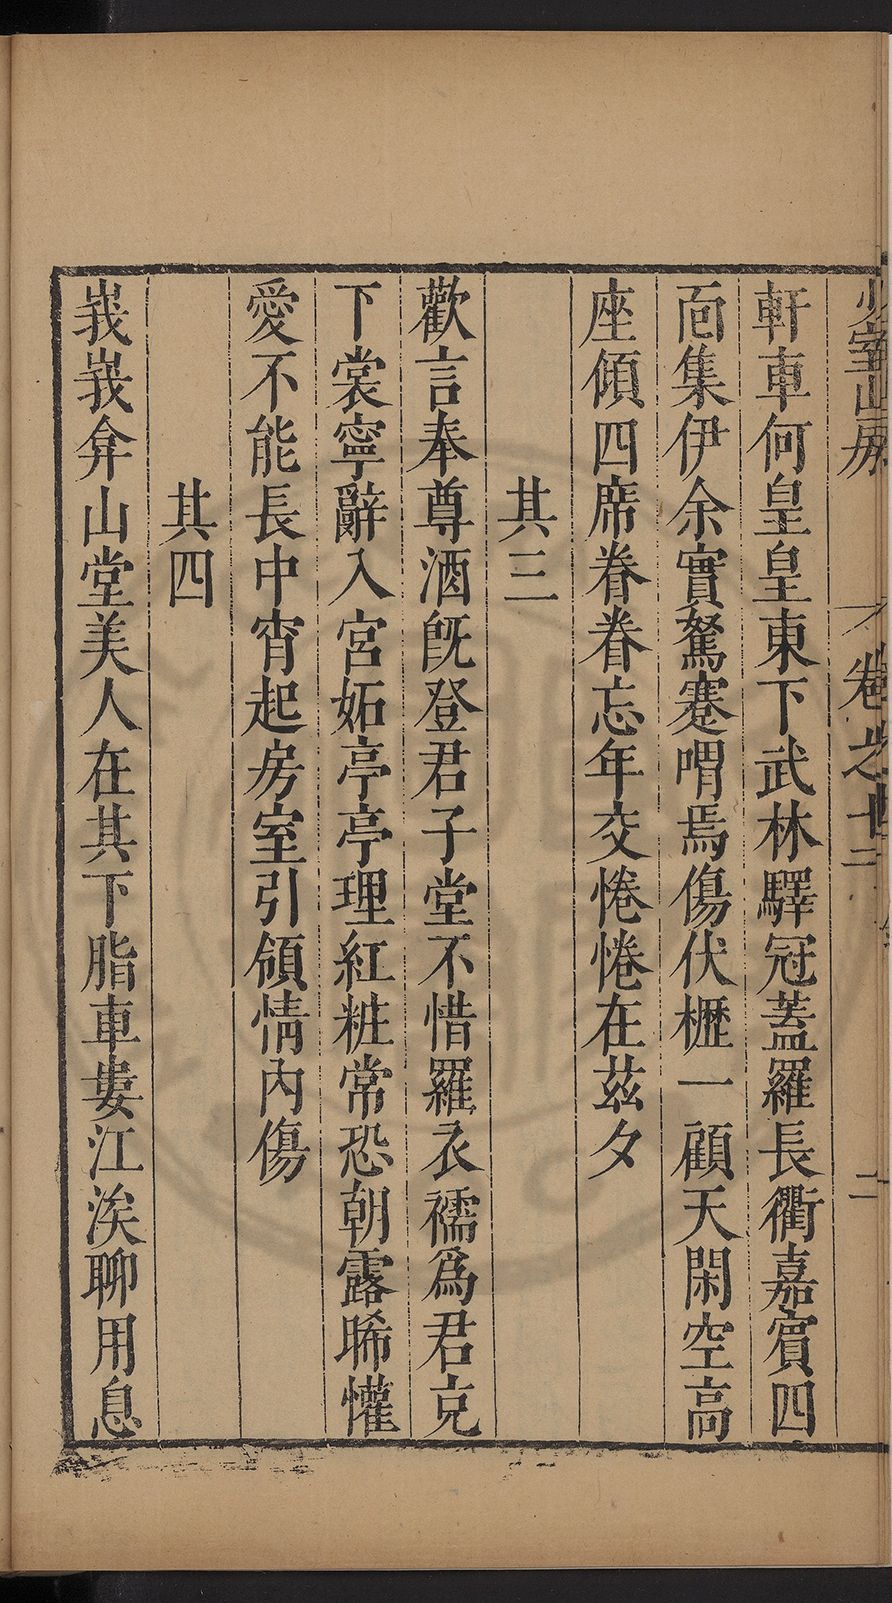 少室山房
卷之十二
二
軒車何皇皇東下武林驛冠蓋羅長衢嘉賓四
面集伊余實駑蹇喟焉傷伏櫪一顧天閑空高
座傾四席眷眷忘年交惓惓在茲夕
其三
歡言奉尊酒旣登君子堂不惜羅衣襦爲君克
下裳寧辭入宮妬亭亭理紅粧常恐朝露晞懽
愛不能長中宵起房室引領情內傷
其四
峩峩弇山堂美人在其下脂車婁江涘聊用息